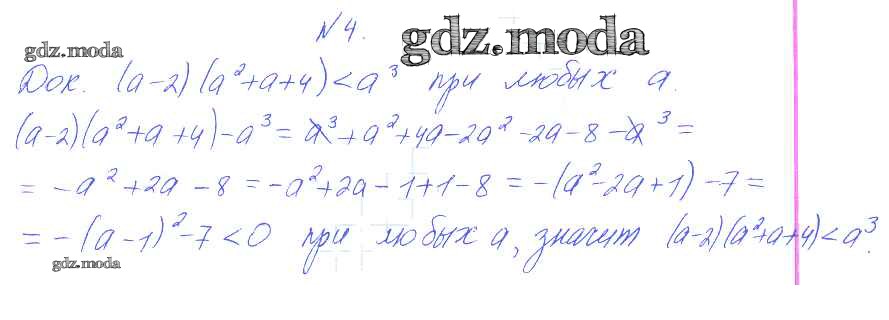 №4.
gdz.moda
gdz.moda
Док. (a-2)(a²+a+4)<a³ при любых a.
(a-2)(a²+a+4)-a³ = a³+a²+4a-2a²-2a-8-a³ =
= -a²+2a-8 = -a²+2a-1+1-8 = -(a²-2a+1)-7 =
= -(a-1)²-7<0 при любых a, значит (a-2)(a²+a+4)<a³.
gdz.moda